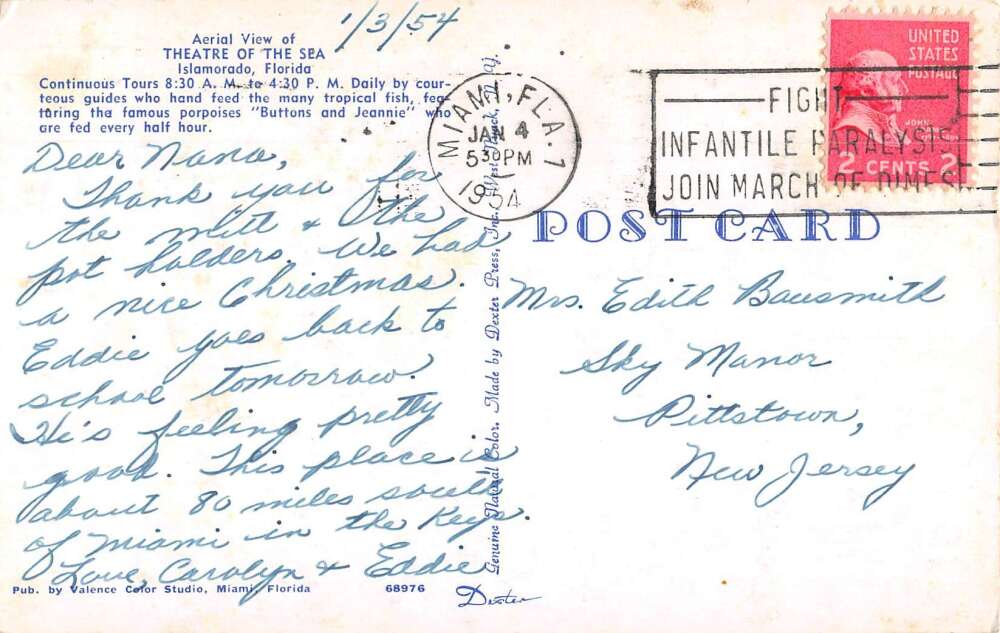 1/3/54
Aerial View of
THEATRE OF THE SEA
Islamorado, Florida
Continuous Tours 8:30 A. M. to 4:30 P. M. Daily by cour-
teous guides who hand feed the many tropical fish, fea-
turing tha famous porpoises "Buttons and Jeannie" who
are fed every half hour.
Dear Nana,
Thank you for
the mitt & the
pot holders. We had
a nice Christmas.
Eddie goes back to
school tomorrow.
He's feeling pretty
good. This place is
about 80 miles south
of Miami in the Keys.
Love, Carolyn & Eddie
Pub. by Valence Color Studio, Miami, Florida
68976
Dexter
Genuine Natural Color. Made by Dexter Press, Inc. West Nyack, N. Y.
MIAMI, FLA. 1
JAN 4
530PM
1954
FIGHT
INFANTILE PARALYSIS
JOIN MARCH OF DIMES
UNITED
STATES
POSTAGE
JOHN
2 CENTS 2
POST CARD
Mrs. Edith Bausmith
Sky Manor
Pittstown,
New Jersey